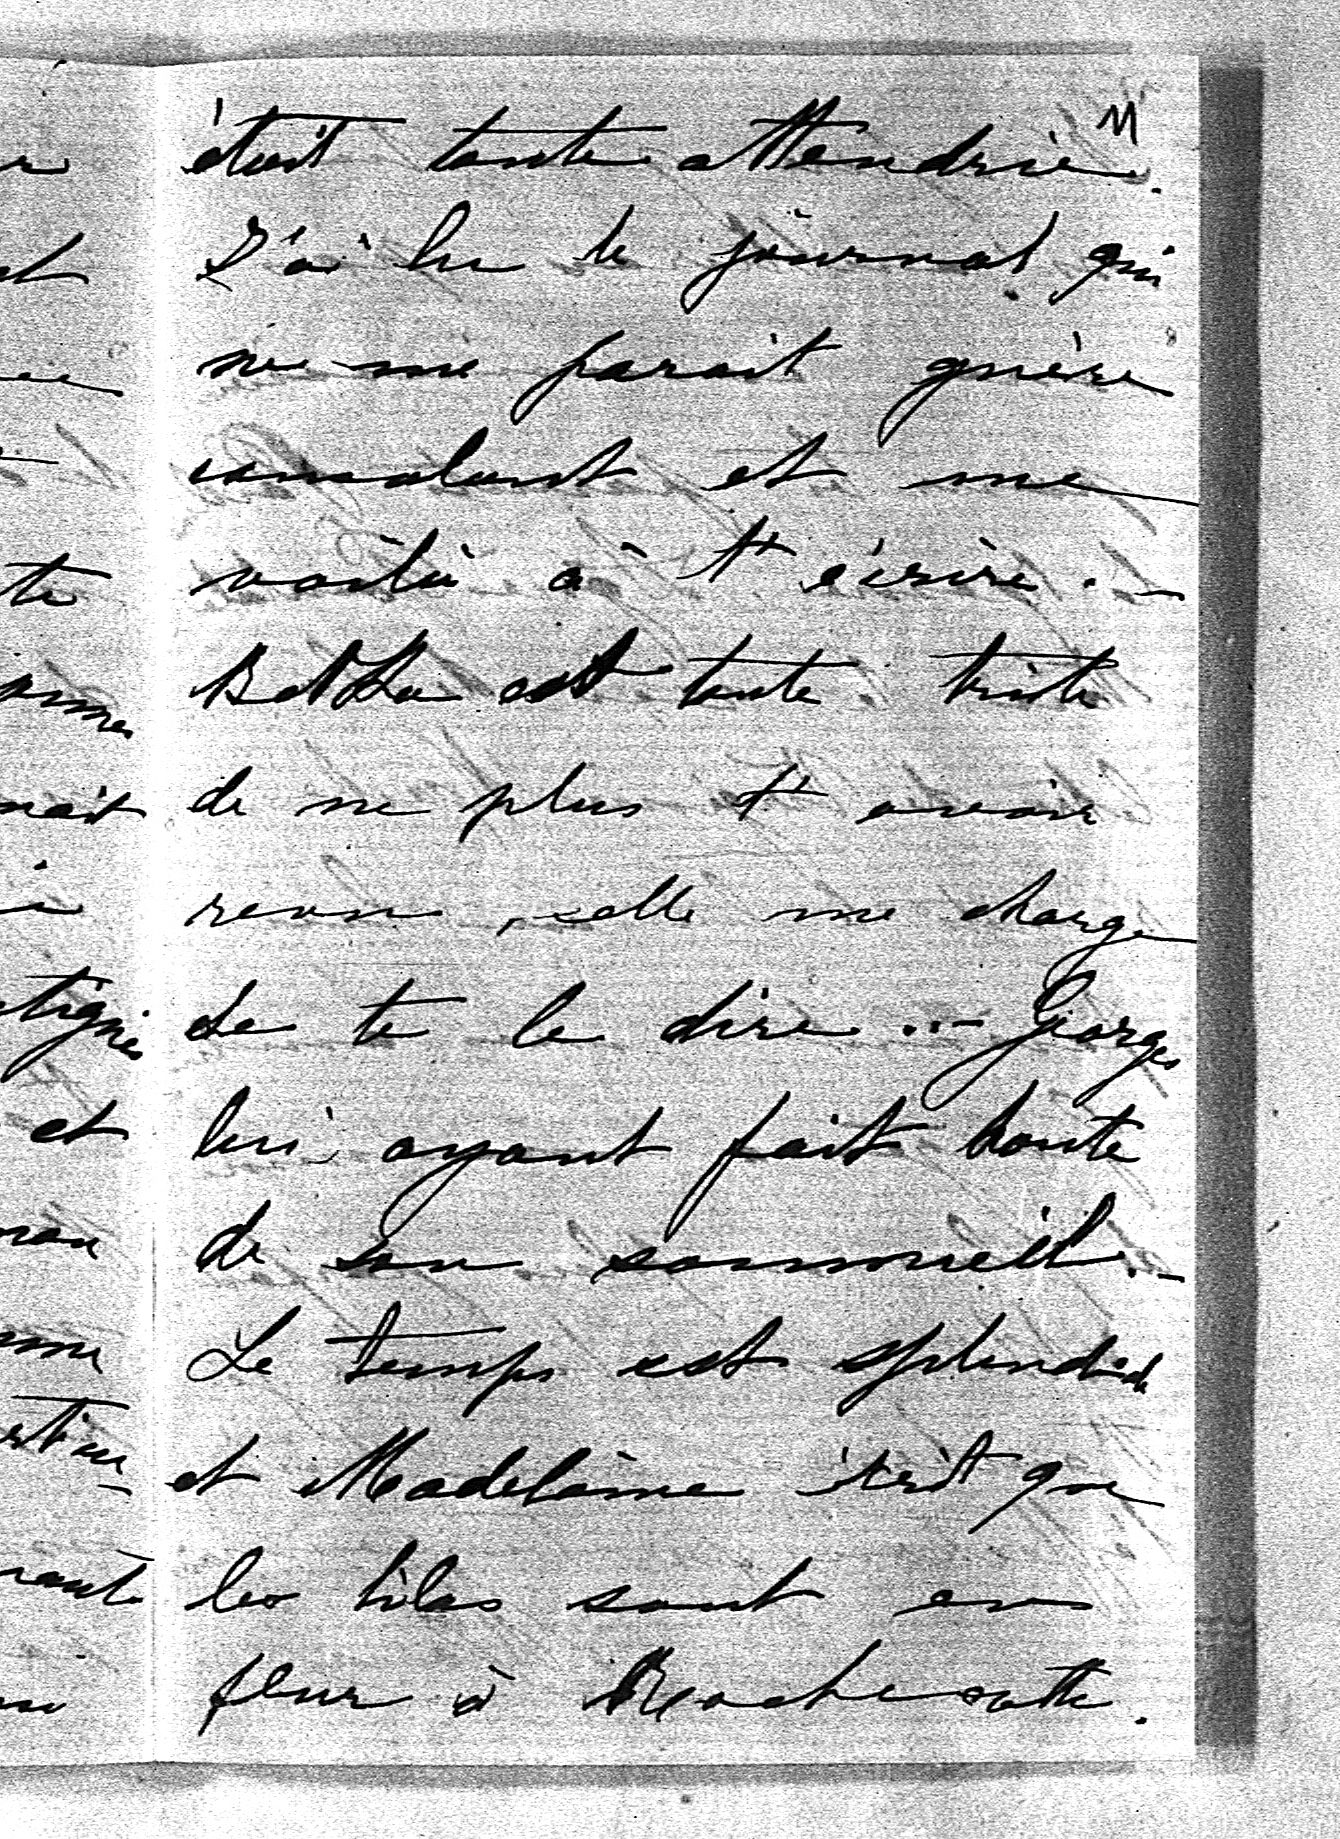 M
était toute attendrie.
J'ai lu le journal qui
ne me parait guère
consolant et me
voilà à t'écrire. _
est toute triste
de ne plus t'avoir
revu, elle me charge
de te le dire ..- Georges
lui ayant fait honte
de son sommeil. _
Le temps est splendide
et Madeleine écrit que
les lilas sont en
fleur à Rochecotte.
et